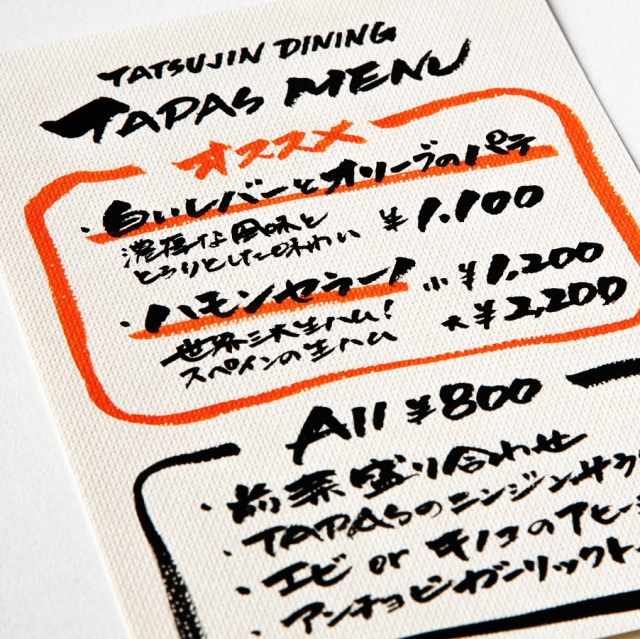 TATSUJIN DINING
TAPAS MENU
オススメ
・白いレバーとオリーブのパテ
濃厚な風味と
とろりとした味わい
¥1.100
・ハモンセラーノ
小¥1,200
世界三大生ハム!
スペインの生ハム
大¥2,200
All ¥800
・前菜盛り合わせ
・TAPASのニンジンサラ
・エビ or キノコのアヒー
・アンチョビガーリックト